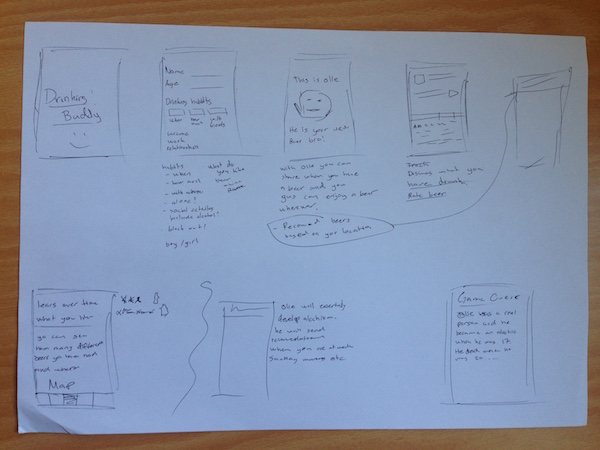 Drinking
Buddy
Name
Age
Drinking habits
when
how much
with friends
income
work
relationships
habits
- when
- how much
- with whom
- alone?
- social catering
include alcohol?
black out?
boy/girl
what do
you like
beer
wine
This is olle
He is your next
beer bro!
with olle you can
share when you have
a beer and you
guys can enjoy a beer
whenever.
- Recomend beers
based on your location
Discuss what you
have drank
Rate beer
learns over time
what you like
you can see
how many different
beer you have had
and where
Map
Olle will eventually
develop alcoholism
he will send
when you are at work
Sunday mornings etc
Game Over
Olle was a real
person and he
became an alcoholic
when he was 17.
He died when he
was 20...